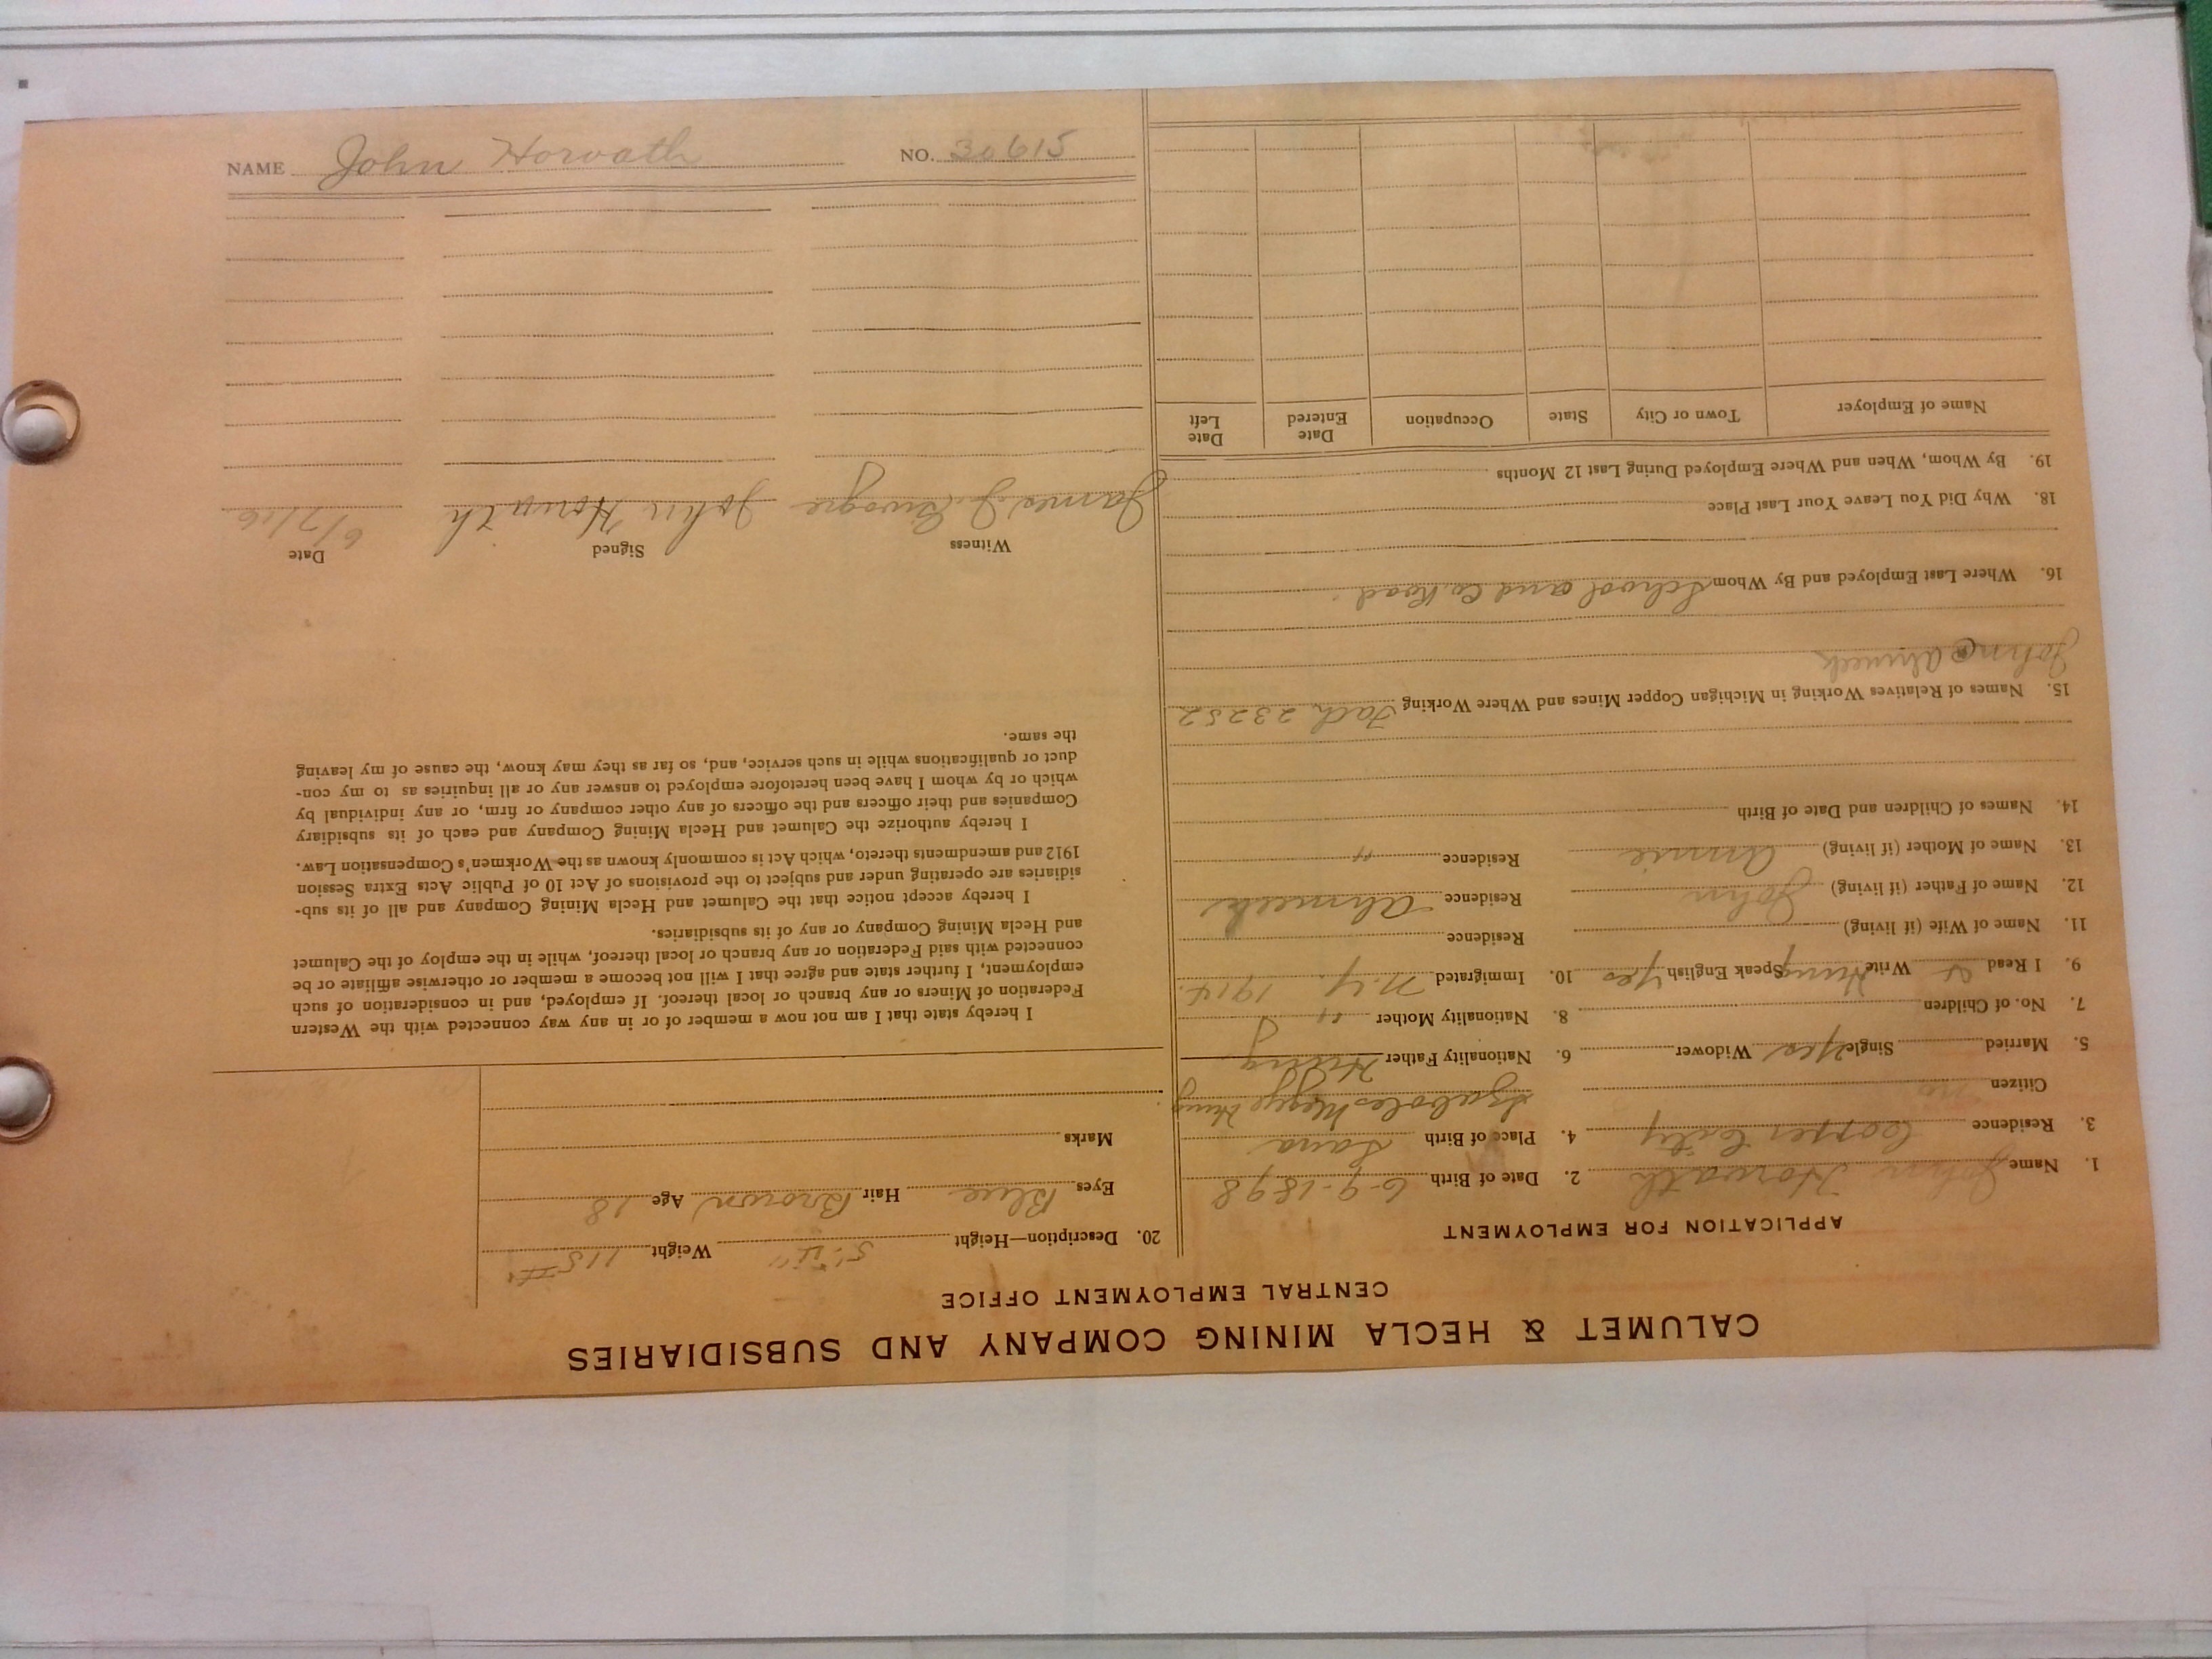 CALUMET & HECLA MINING COMPANY AND SUBSIDIARIES
CENTRAL EMPLOYMENT OFFICE
APPLICATION FOR EMPLOYMENT
1. Name John Horvath 2. Date of Birth 6-9-1898
3. Residence Copper City 4. Place of Birth Sara
Citizen no Szabolcs Megye Hung
5. Married Single Yes Widower 6. Nationality Father Hung
7. No. of Children 8. Nationality Mother "
9. I Read & Write Hung Speak English Yes 10. Immigrated N.Y. 1914.
11. Name of Wife (if living) Residence
12. Name of Father (if living) John Residence Ahmeek
13. Name of Mother (if living) Annie Residence "
14. Names of Children and Date of Birth
15. Names of Relatives Working in Michigan Copper Mines and Where Working Fath 23252
John @ Ahmeek
16. Where Last Employed and By Whom School and Co. Road.
18. Why Did You Leave Your Last Place
19. By Whom, When and Where Employed During Last 12 Months
Name of Employer Town or City State Occupation Date Entered Date Left
20. Description—Height Weight 115#
Eyes Blue Hair Brown Age 18
Marks
I hereby state that I am not now a member of or in any way connected with the Western
Federation of Miners or any branch or local thereof. If employed, and in consideration of such
employment, I further state and agree that I will not become a member or otherwise affiliate or be
connected with said Federation or any branch or local thereof, while in the employ of the Calumet
and Hecla Mining Company or any of its subsidiaries.
I hereby accept notice that the Calumet and Hecla Mining Company and all of its sub-
sidiaries are operating under and subject to the provisions of Act 10 of Public Acts Extra Session
1912 and amendments thereto, which Act is commonly known as the Workmen's Compensation Law.
I hereby authorize the Calumet and Hecla Mining Company and each of its subsidiary
Companies and their officers and the officers of any other company or firm, or any individual by
which or by whom I have been heretofore employed to answer any or all inquiries as to my con-
duct or qualifications while in such service, and, so far as they may know, the cause of my leaving
the same.
Witness Signed Date
James J. John Horvath 6/7/16
NAME John Horvath NO. 30615